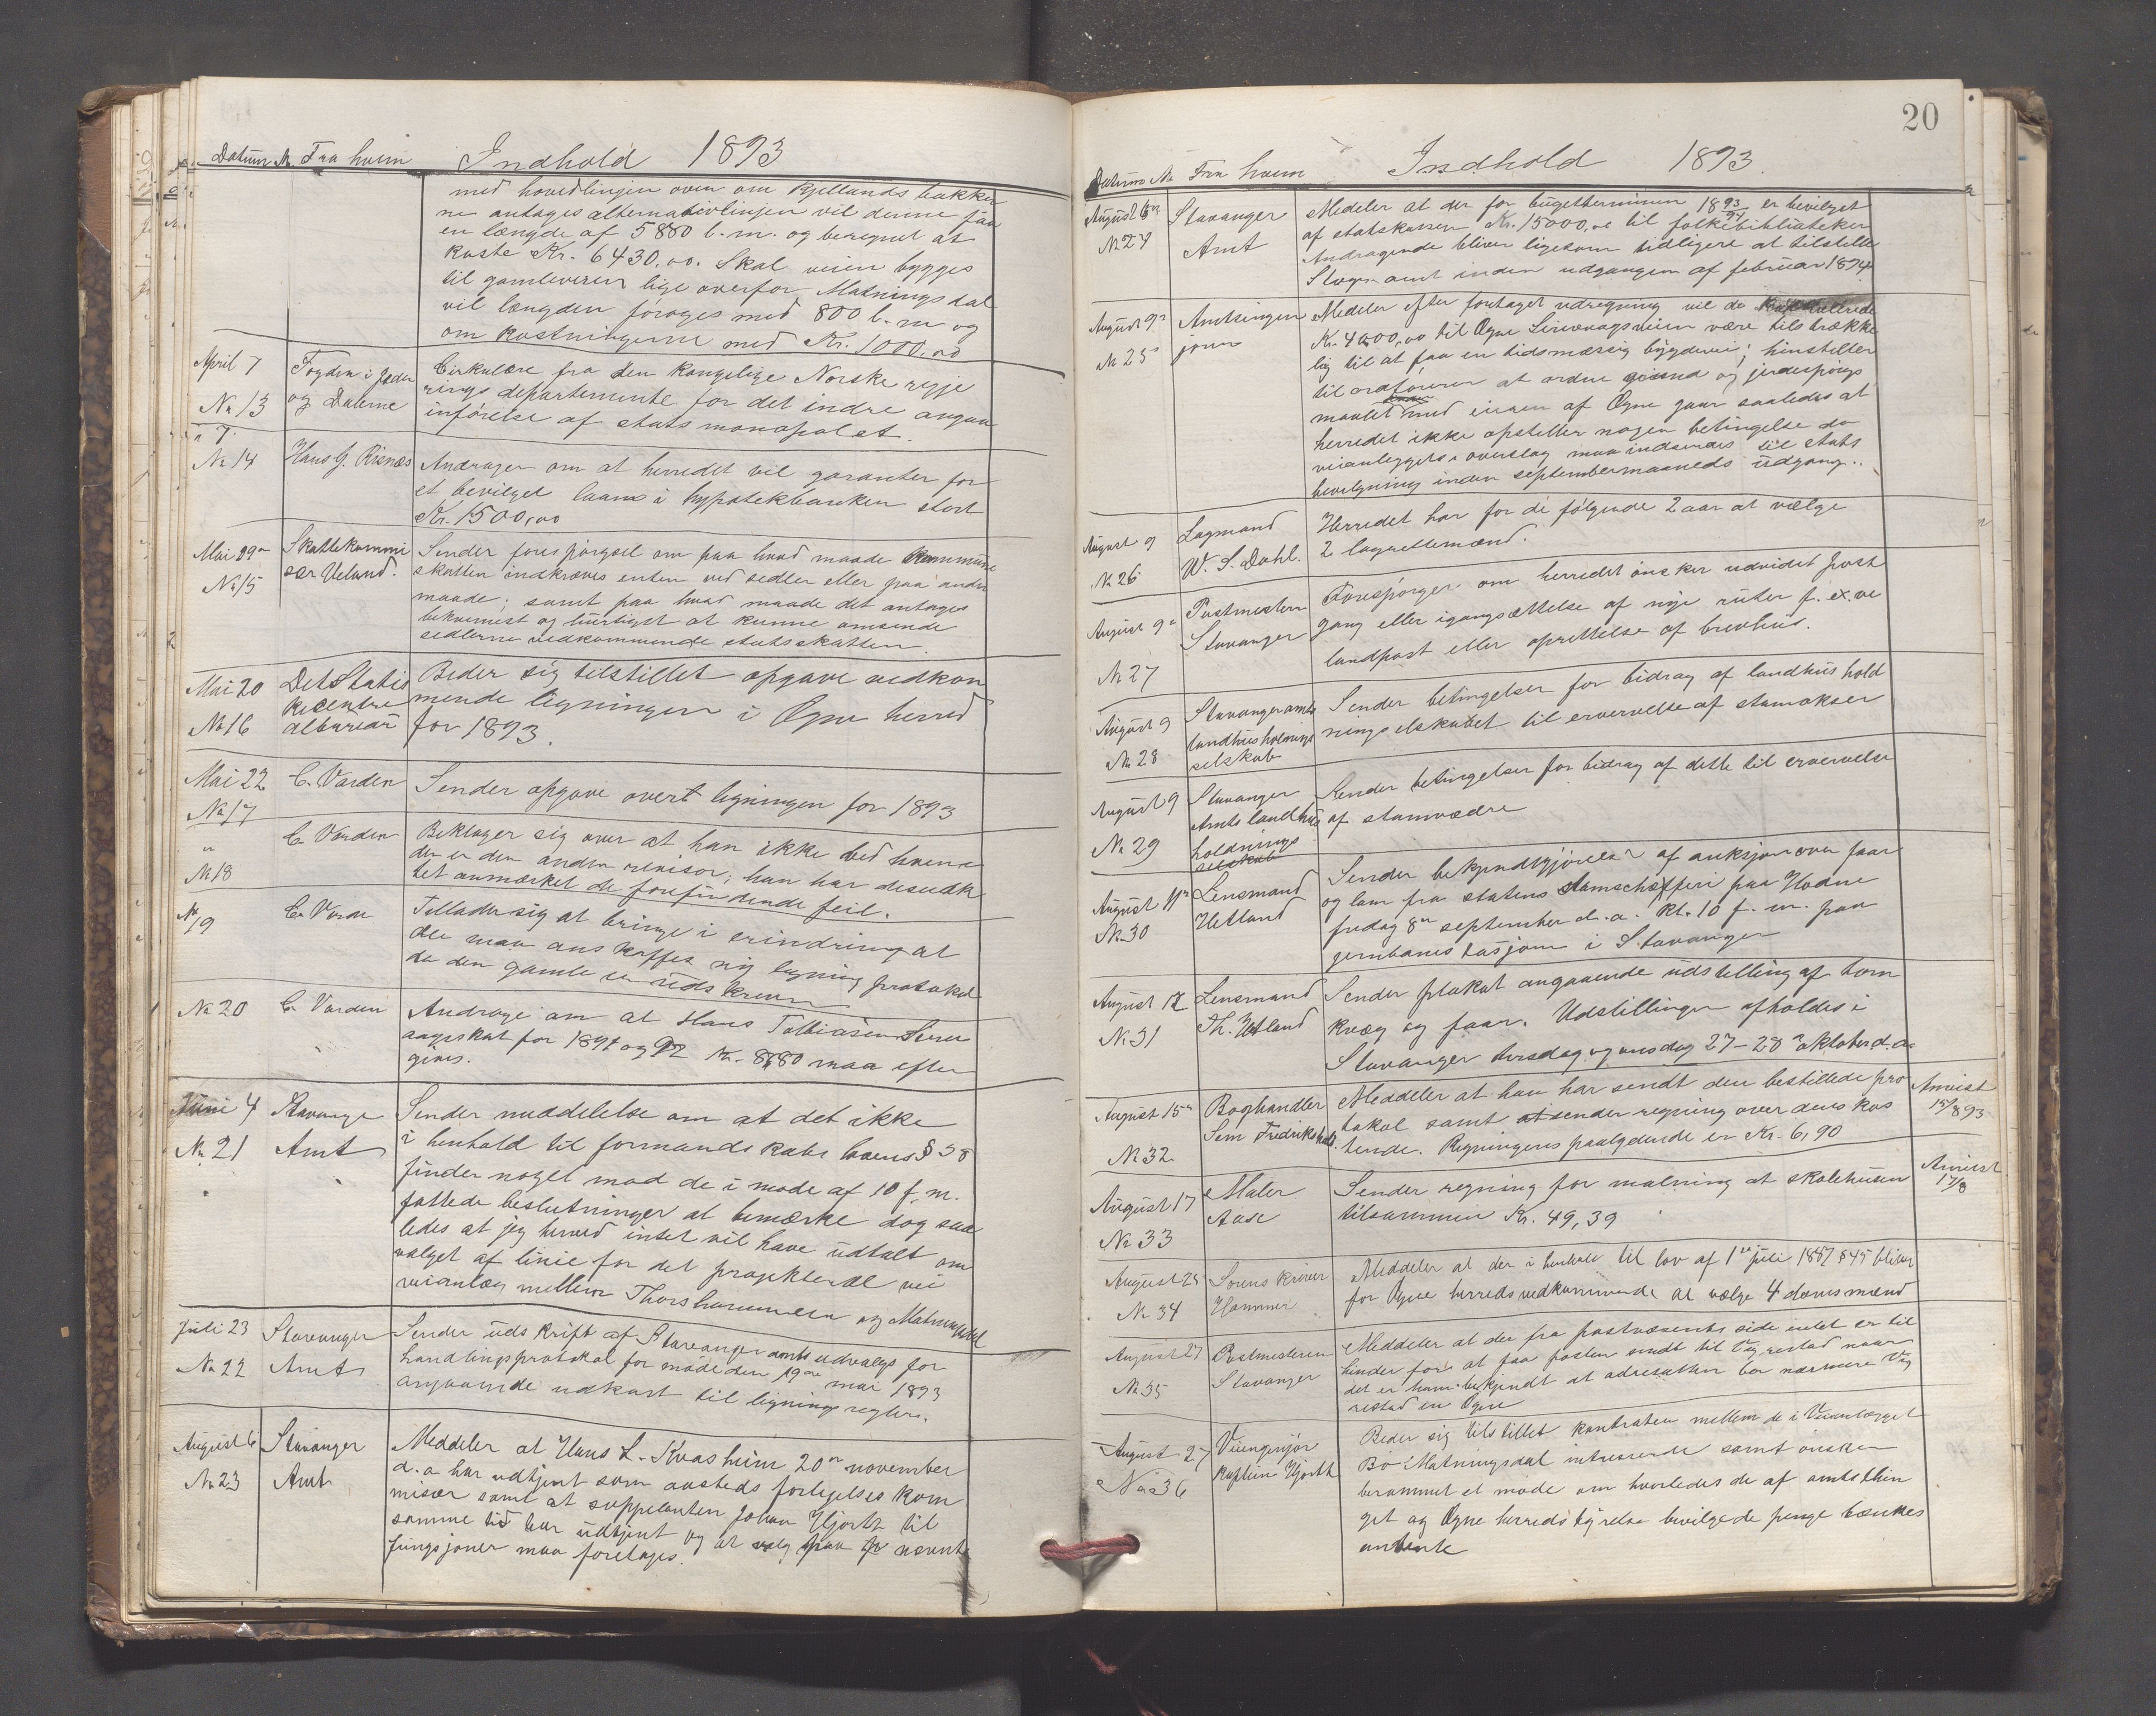 Datum № Fra hvem Indhold 1893
med hovedlinjen oven om Kjellands bakker
ne antages alternativlinjen vil denne faa
en længde af 5880 l. m. og beregnet at
koste Kr. 6430,00. Skal veien bygges
til gamleveien lige overfor Matningsdal
vil længden forøges med 800 l. m og
omkostningerne med Kr. 1000,00
April 7
№ 13
Fogden i Jæder
og Dalerne
Cirkulære fra den kongelige Norske regje
rings departemente for det indre angaa
inførelse af statsmonopolet.
" 7
№ 14
Hans G. Risnæs
Andrager om at herredet vil garanter for
et bevilget laan i hypotekbanken stort
Kr. 1500,00
Mai 09
№ 15
Skattekommi
sær Ueland.
Sender forespørgsel om paa hvad maade kommune
skatten indkræves enten ved sedler eller paa anden
maade; samt paa hvad maade det antages
bekvemest og hurtigst at kunne omsende
sedlerne vedkommende statsskatten.
Mai 20
№ 16
Det Statis
ke centra
alburiau
Beder sig tilstillet opgave vedkom
mende ligningen i Ogne herred
for 1893.
Mai 22
№ 17
C. Varden
Sender opgave over ligningen for 1893
"
№ 18
C. Varden
Beklager sig over at han ikke ved hvem
der er den anden revisor; han har desuden
let anmærket de forefindende feil.
№ 19
C. Varde
Tillader sig at bringe i erindring at
der maa anskaffes nig ligning protokol
da den gamle er udskreven
№ 20
C. Varden
Andrage om at Hans Tobiasen
angskat for 1891 og 92 Kr. 8,80 maa efter
gives.
Juni 4
№ 21
Stavange
Amt
Sender meddelelse om at det ikke
i henhold til formandskabs lovens § 38
finder noget mod de i møde af 10 f. m.
fattede beslutninger at bemærke dog saa
ledes at jeg herved intet vil have udtalt om
valget af linie for det projekteret vei
veianlæg mellem Thorshammeren og Matningsdal
Juli 23
№ 22
Stavanger
Amt
Sender udskrift af Stavanger amts udvalgs for
handlingsprotokol for møde den 19de mai 1893
angaaende udkast til ligningsregler.
August 6
№ 23
Stavanger
Amt
Meddeler at Hans L. Kvasheim 20de november
d. a har udtjent som austeds forligelses kom
misær samt at suppelanten Johan Hjorth til
samme tid har udtjent og at valg paa nævnte
fungsjoner maa foretages.
20
Datum № Fra hvem Indhold 1893.
August 6
№ 24
Stavanger
Amt
Medeler at der for bugetterminen 1893/94 er bevilget
af statskassen Kr. 15000,00 til folkebibliøteker
Andragende bliver ligesom tidligere at tilstille
Stvgr. amt inden udgangen af februar 1894
August 9
№ 25
Amtsingen
jøren
Medeler efter foretaget udregning vil de
Kr. 4000,00 til Ogne Sirevaagsveien være tilstrække
lig til at faa en tidsmæssig bygdevei; henstiller
til ordføreren at ordne grund og jerdespørgs
maalet med eieren af Ogne gaar saaledes at
herredet ikke opstiller nogen betingelse da
veianleggets overslag maa indsendes til stats
bevilgning inden septembermaaneds udgang.
August 9
№ 26
Lagmand
W. S. Dahl.
Herredet har for de følgende 2 aar at vælge
2 lagrettemænd.
August 9
№ 27
Postmesteren
Stavanger
Forespørger om herredet ønsker udvidet post
gang eller igangsættelse af nye ruter f. ex. ve
landpost eller oprettelse af brevhus.
August 9
№ 28
Stavanger amts
landhusholdnings
selskab
Sender betingelser for bidrag af landhushold
ningselskabet til ervervelse af stamokser
August 9
№ 29
Stavanger
Amts landhus
holdnings
selskab
Sender betingelser for bidrag af dette til ervervelse
af stamvædre
August 11
№ 30
Lensmand
Hetland
Sender bekjendtgjørelse af auksjon over faar
og lam fra statens stamschæfferi paa Hodne
fredag 8de september d. a. Kl. 10 f. m. paa
jernbanestasjonen i Stavanger
August 12
№ 31
Lensmand
Th. Hetland
Sender plakat angaaende udstelling af horn
kvæg og faar. Udstillingen afholdes i
Stavanger tirsdag og onsdag 27-28de oktober d. a
August 15
№ 32
Boghandler
Sem Fredrikshald.
Meddeler at han har sendt den bestillede pro
tokol samt sender regning over dens kos
tende. Regningens paalydende er Kr. 6,90
Anvist
15/8 93
August 17
№ 33
Maler
Aase
Sender regning for malning at skolehusen
tilsammen Kr. 49,39
Anvist
17/8
August 25
№ 34
Sorenskriver
Hammer
Meddeler at der i henhold til lov af 1ste juli 1887 § 45 bliver
for Ogne herreds vedkommende at vælge 4 domsmænd
August 27
№ 35
Postmesteren
Stavanger
Meddeler at der fra postvæsents side intet er til
hinder for at faa posten sendt til Vigrestad naar
det er ham bekjendt at adresatten bor nærmere Vig
restad en Ogne
August 27
№ 36
Veiingeniør
Kaptein Hjorth
Beder sig tilstillet kontrakten mellem de i Veianlægget
Bø-Matningsdal intresserende samt ønsker
berammet et møde om hvorledes de af amtsthin
get og Ogne herredstyrelse bevilgede penge tænkes
anvente